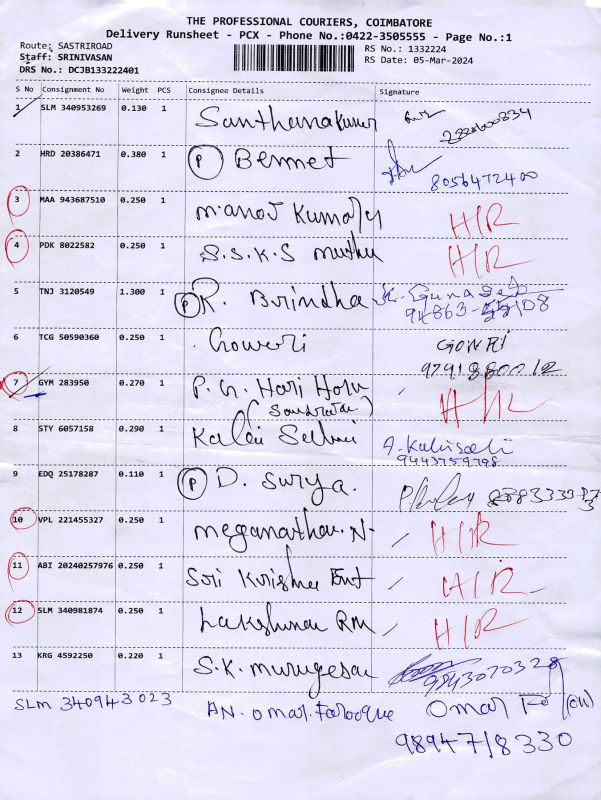 THE PROFESSIONAL COURIERS, COIMBATORE
Delivery Runsheet - PCX - Phone No.:0422-3505555 - Page No.:1
Route: SASTRIROAD RS No.: 1332224
Staff: SRINIVASAN RS Date: 05-Mar-2024
DRS No.: DCJB133222401
S No Consignment No Weight PCS Consignee Details Signature
1 SLM 340953269 0.130 1 Santhanakumar
2 HRD 20386471 0.380 1 P Bennet 8056472400
3 MAA 943687510 0.250 1 Manoj Kumar H/R
4 PDK 8022582 0.250 1 S.S.K.S muthu H/R
5 TNJ 3120549 1.300 1 P R. Birindha K. Gunaseh
94863- 08
6 TCG 50590360 0.250 1 Goweri GOWRI
7 GYM 283950 0.270 1 P.G. Hari Hara H/R
8 STY 6057158 0.290 1 Kalai Selvi
9443759798
9 EDQ 25178287 0.110 1 P D. Surya.
10 VPL 221455327 0.250 1 meganathan.N- H/R
11 ABI 20240257976 0.250 1 Sri Krishna Ent H/R
12 SLM 340981874 0.250 1 Lakshmna RM H/R
13 KRG 4592250 0.220 1 S.K. murugesan 9843070328
SLM 340943023 AN. Omar. Farooque Omar
9894718330